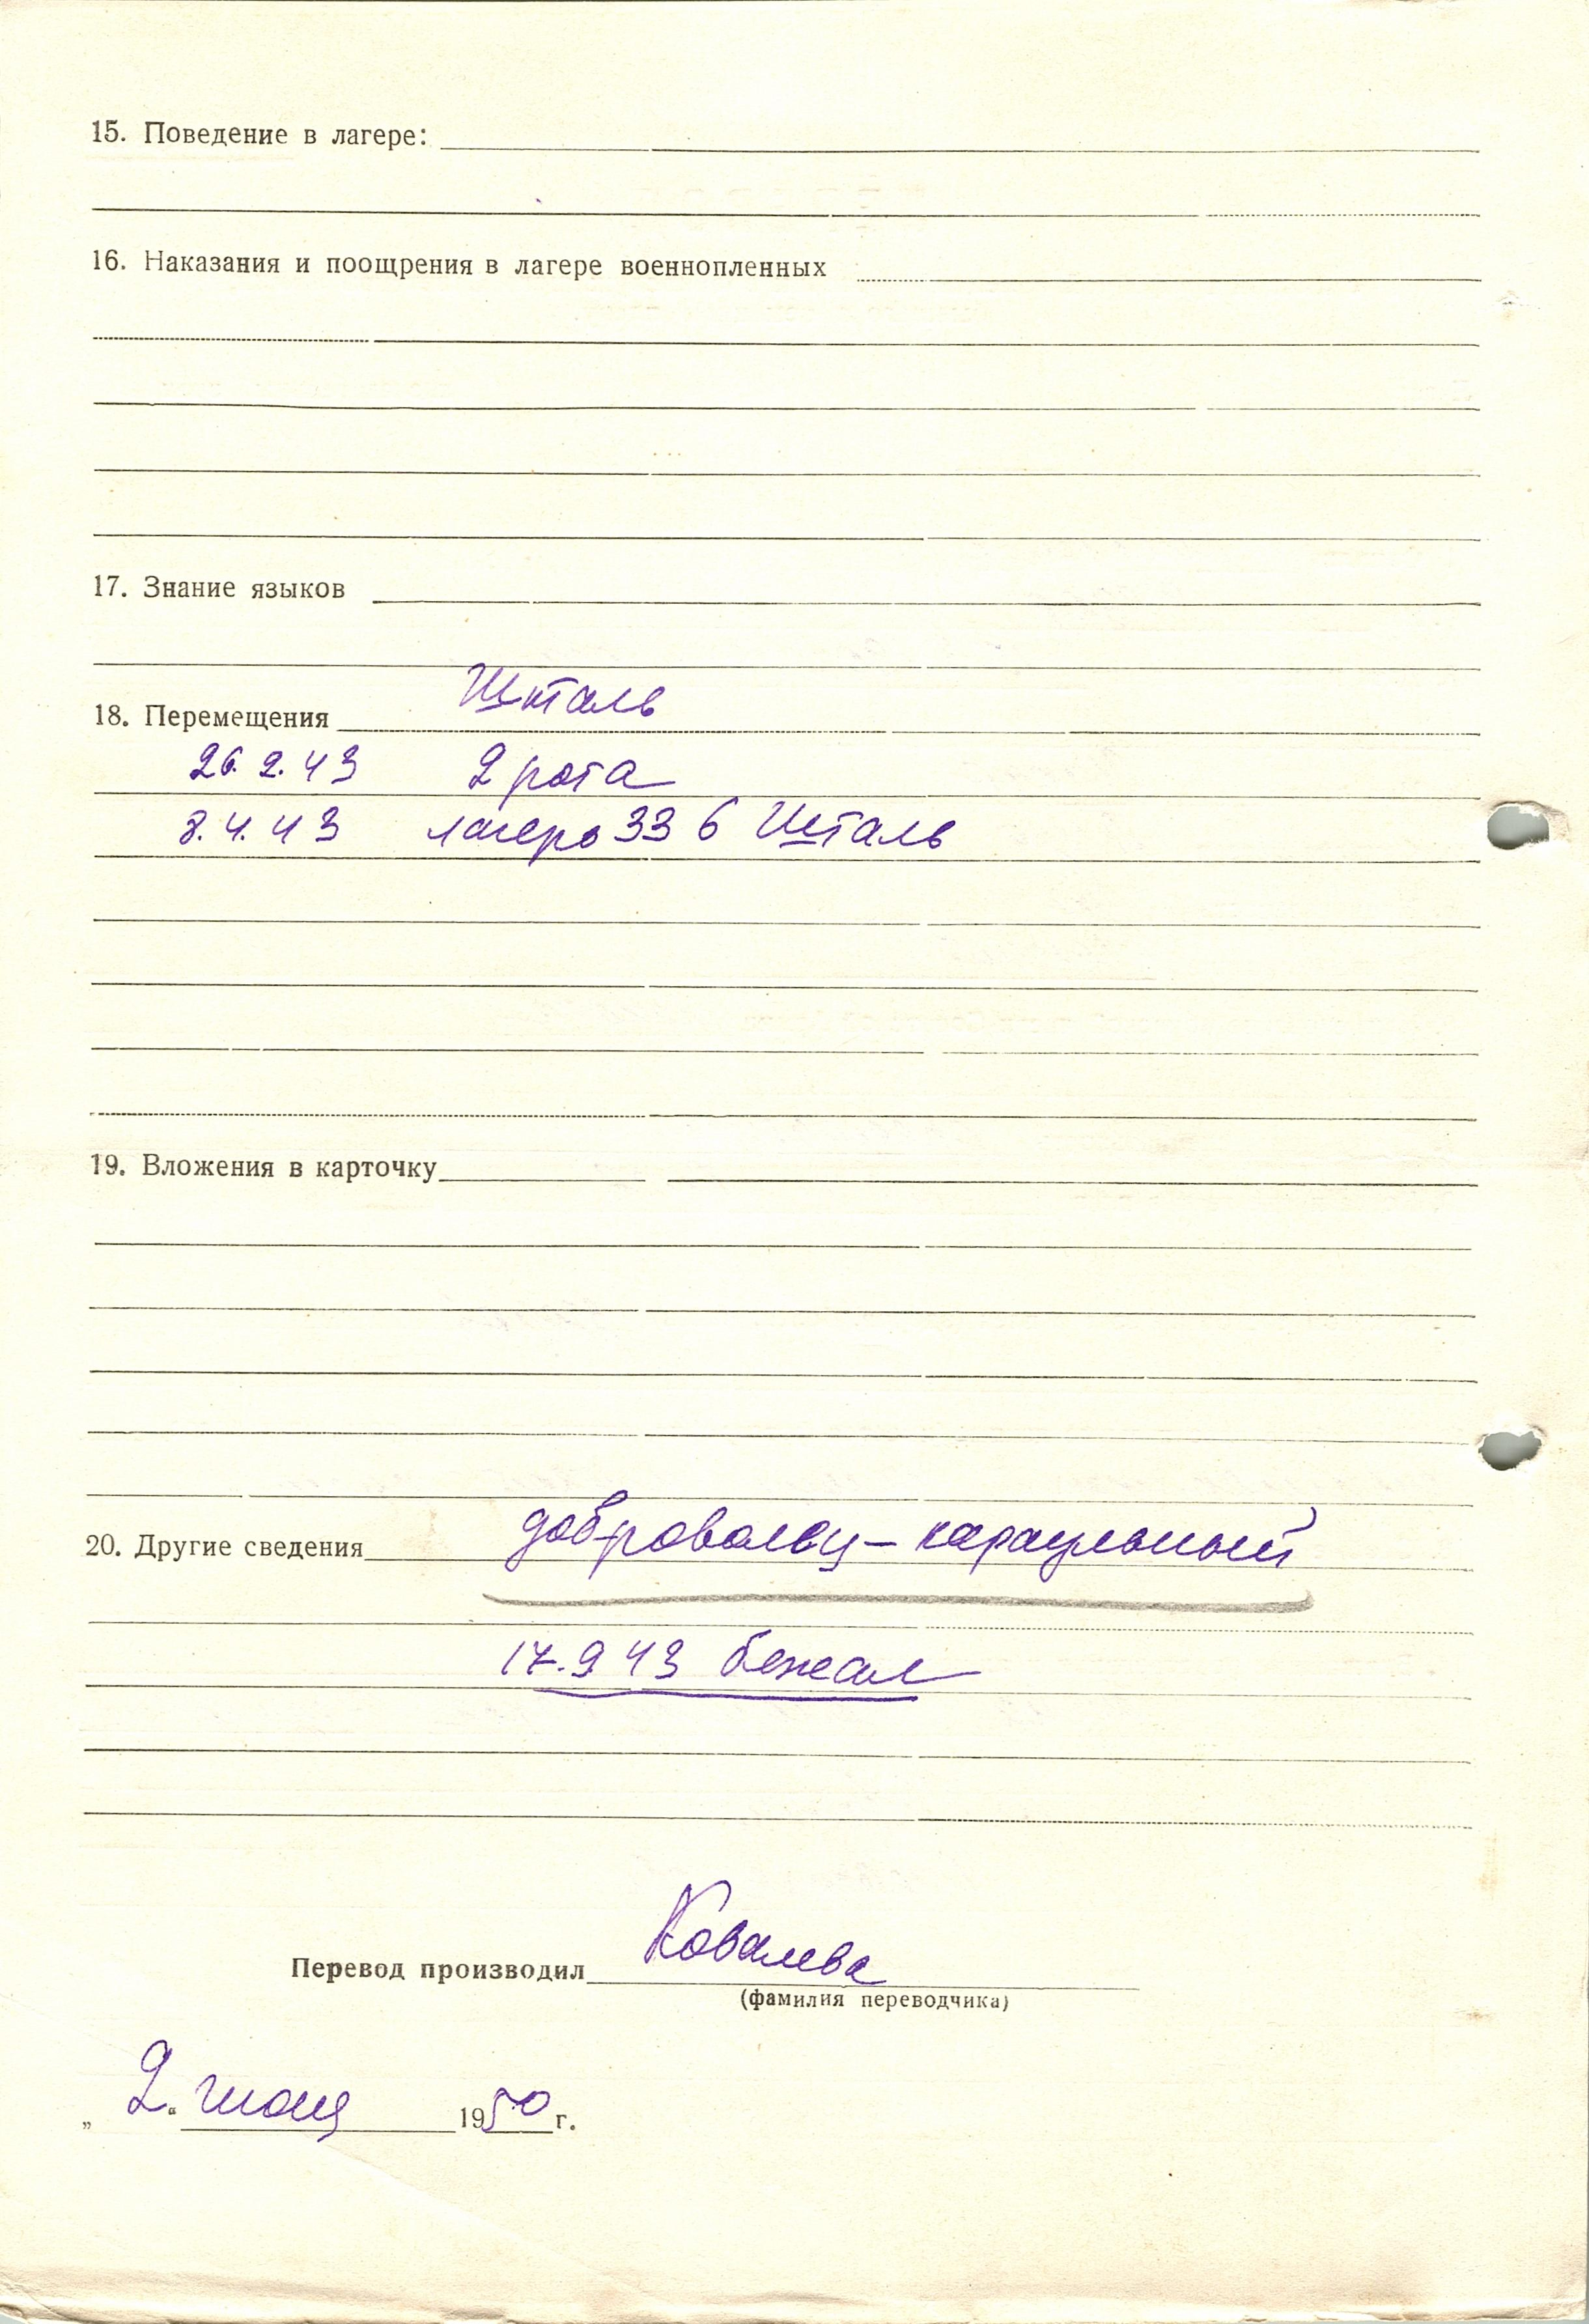 15. Поведение в лагере:
16. Наказания и поощрения в лагере военнопленных
17. Знание языков
Шталь
18. Перемещения
26.2.43 2 рота
8.4.43 лагерь 336 Шталь
19. Вложения в карточку
20. Другие сведения доброволец - караульный
17.9 43 бежал
Перевод производил Ковалева
(фамилия переводчика)
„ 2. “ 1950 г.